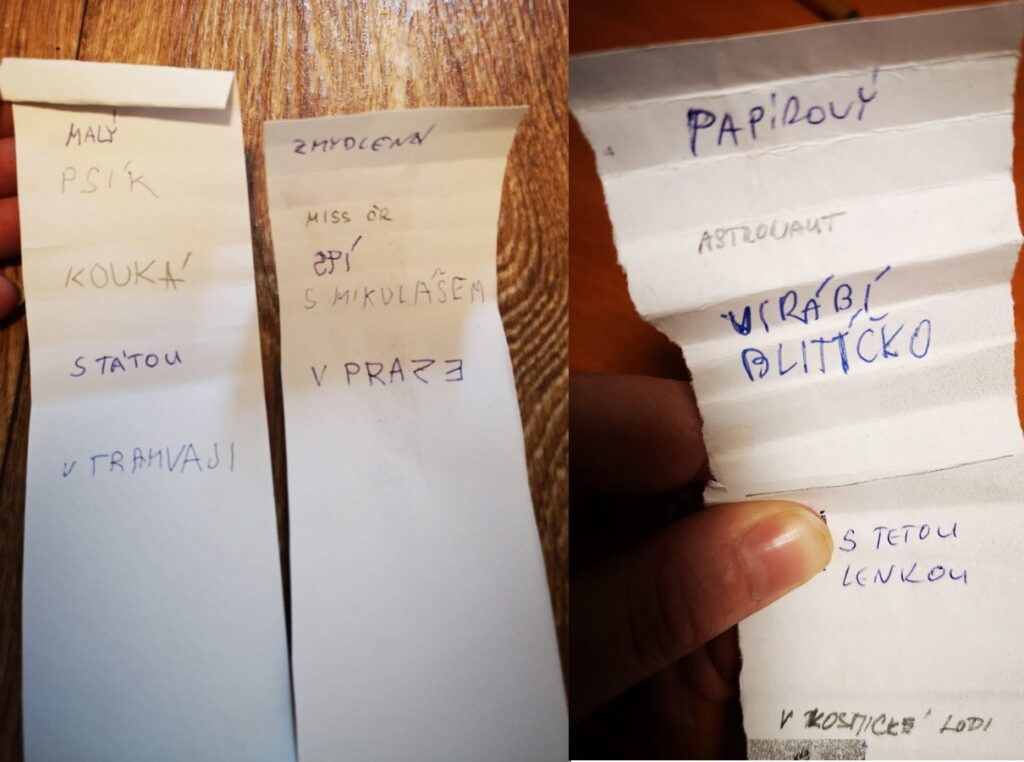 MALÝ
PSÍK
KOUKÁ
S TÁTOU
V TRAMVAJI
ZMYDLENÁ
MISS ČR
SPÍ
S MIKULÁŠEM
V PRAZE
PAPÍROVÝ
ASTRONAUT
VIRÁBÍ
BLITÍČKO
S TETOU
LENKOU
V KOSMICKÉ LODI